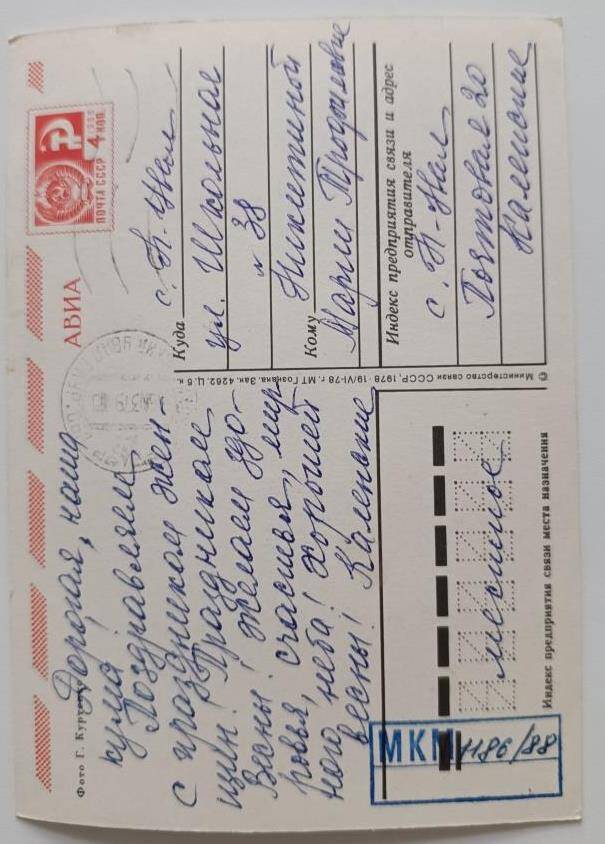 Фото Г. Куртенко
Дорогая, наша
кума!
Поздравляем
с праздником жен-
щин! Праздником
Весны! Желаем здо-
ровья, счастья, мир
ного, неба! Хорошей
весны! Каленские
АВИА
1966
ПОЧТА СССР 4 КОП.
Куда с. П-Увал
ул. Школьная
№ 38
Никитиной
Кому
Марии Трофиловне
Индекс предприятия связи и адрес
отправителя
с. П-Увал
Почтовая 20
Каленские
© Министерство связи СССР, 1978 · 19/VI-78 г. МТ Гознака. Зак. 4262. Ц. 5 к.
МКМ
местное
Индекс предприятия связи места назначения